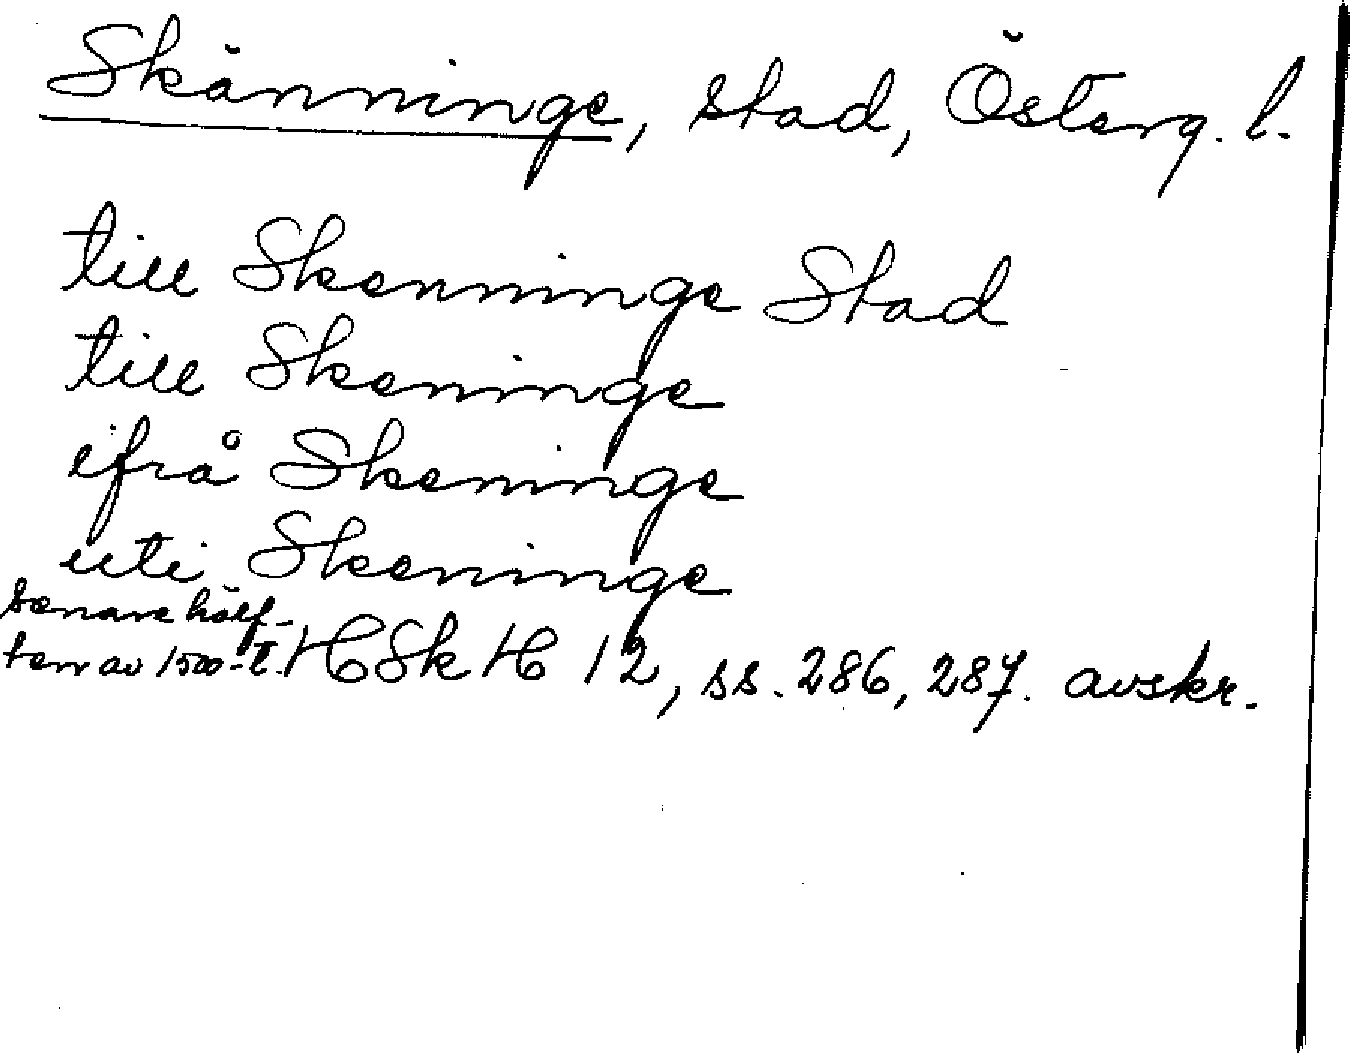 Skänninge, stad, Österg. l.
till Skenninge Stad
till Skeninge
ifrå Skeninge
uti Skeninge
senare hälf-
ten av 1500-t. HSkH 12, ss. 286, 287. avskr.